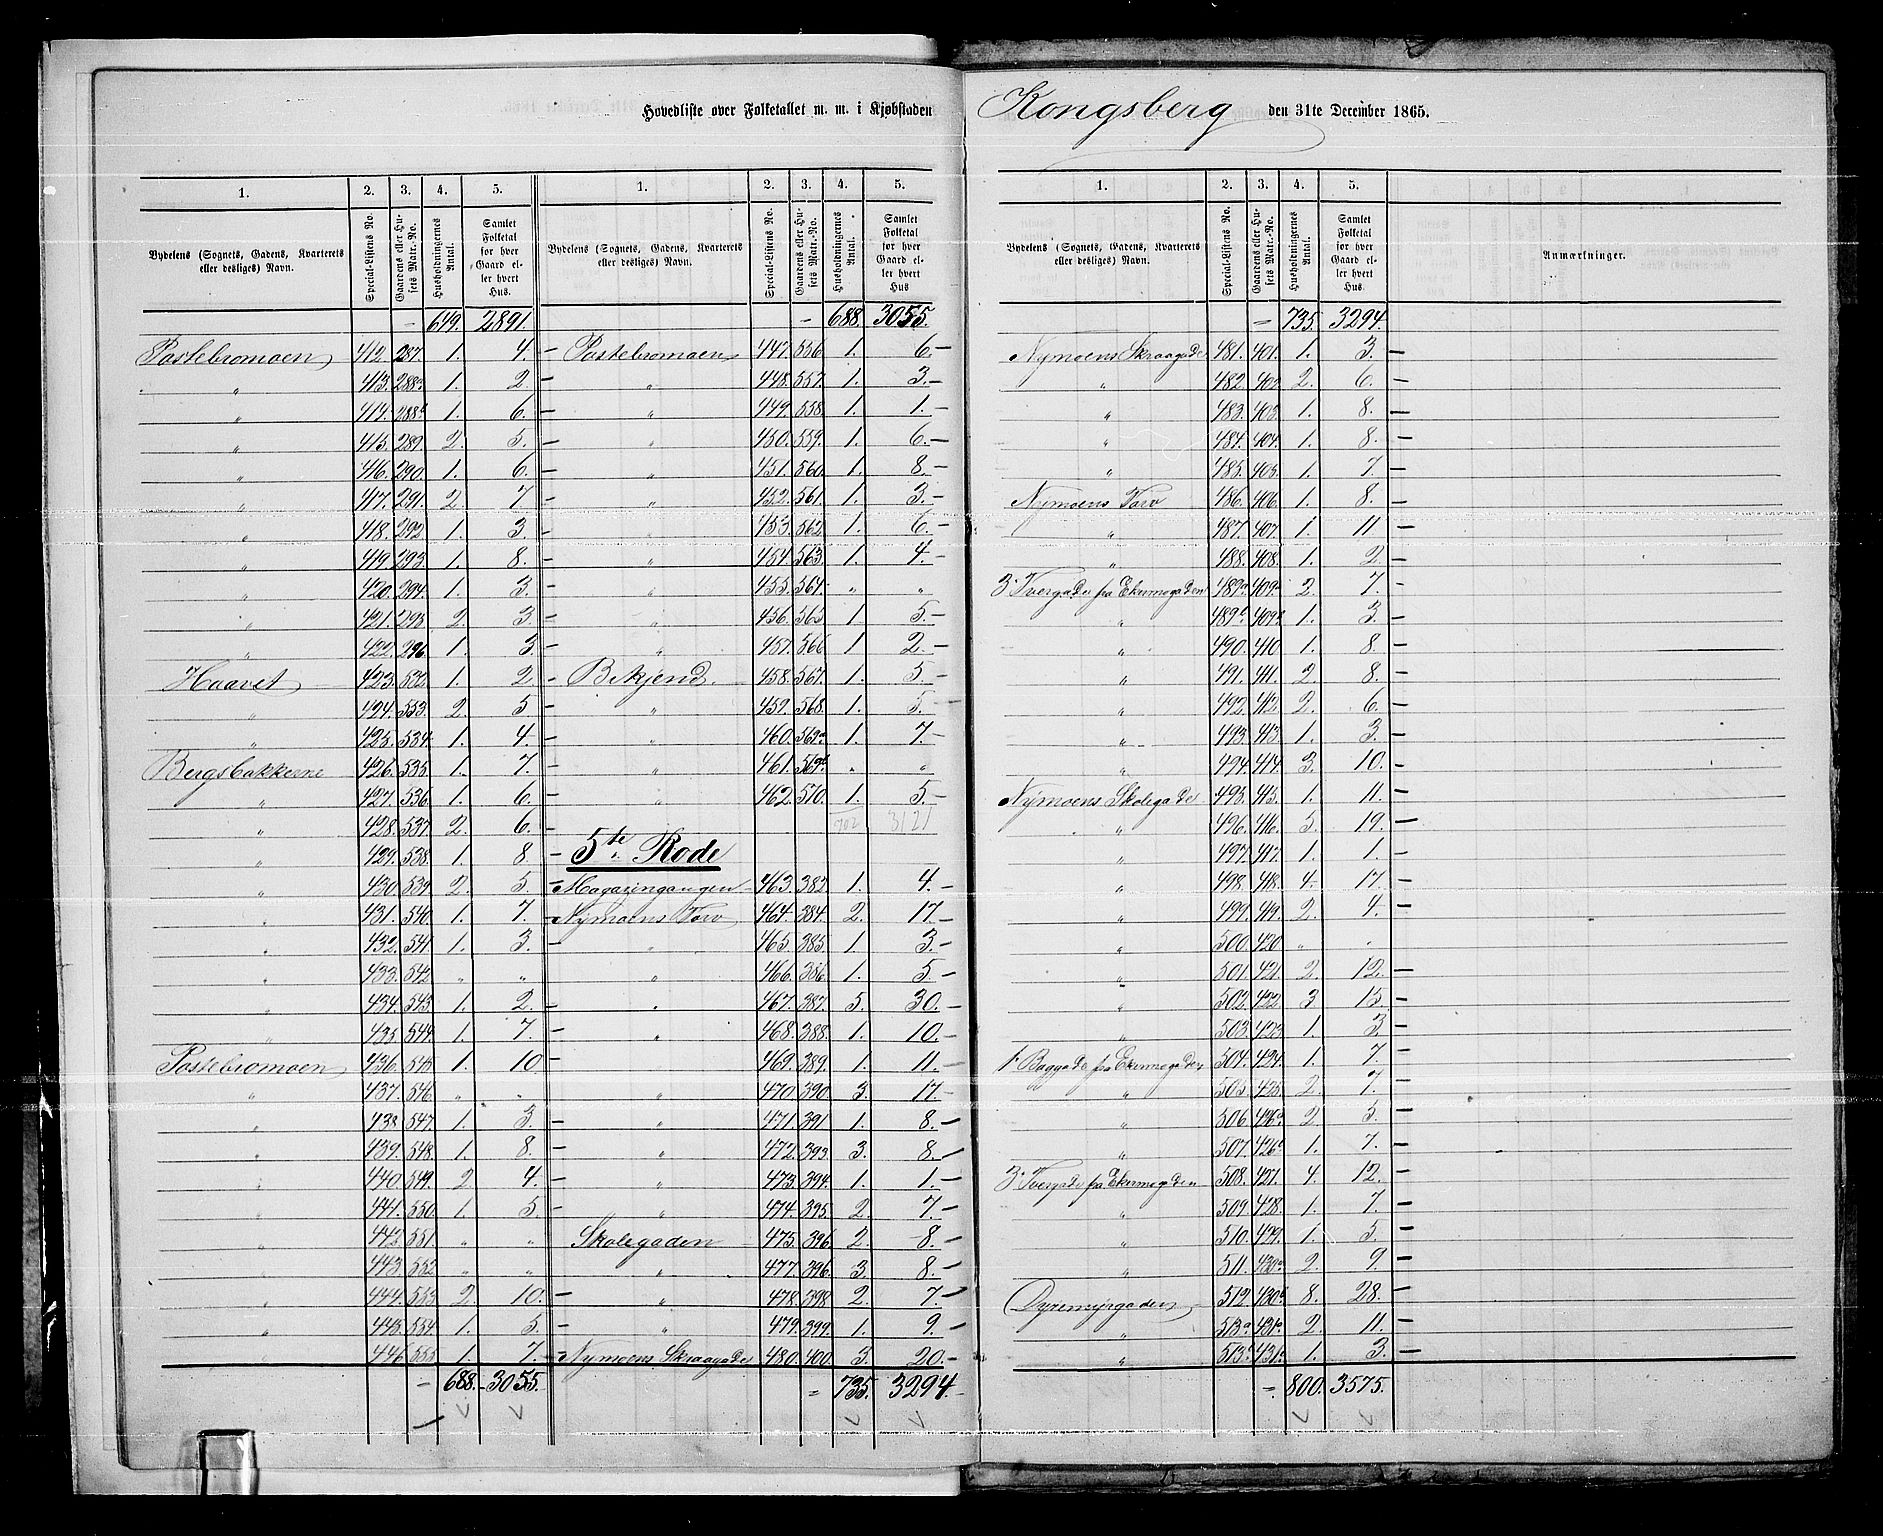 Hovedliste over Folketallet m. m. i Kjøbstaden Kongsberg den 31te December 1865.
1. 2. 3. 4. 5. 1. 2. 3. 4. 5.
Bydelens (Sognets, Gadens, Kvarterets eller desliges) Navn. Special-Listens No. Gaardens eller Husets Matr.-No. Husholdningernes Antal. Samlet Folketal for hver Gaard eller hvert Hus. Bydelens (Sognets, Gadens, Kvarterets eller desliges) Navn. Special-Listens No. Gaardens eller Husets Matr.-No. Husholdningernes Antal. Samlet Folketal for hver Gaard eller hvert Hus.
– 649. 2891. – 688. 3055.
Pastebromoen 412. 287. 1. 4. – Pastebromoen 447. 556. 1. 6. –
„ 413. 288a 1. 2 – „ 448. 557. 1. 3. –
„ 414. 288b 1. 6. – „ 449. 558. 1. 1. –
„ 415. 289. 2. 5. – „ 450. 559. 1. 6. –
„ 416. 290. 1. 6. – „ 451. 560. 1. 8. –
„ 417. 291. 2. 7. – „ 452. 561. 1. 3. –
„ 418. 292. 1. 3. – „ 453. 562. 1. 6. –
„ 419. 293. 1. 8. – „ 454. 563. 1. 4. –
„ 420. 294. 1. 3. – „ 455. 564. „ „
„ 421. 295 2. 3. – „ 456. 565 1. 5. –
„ 422. 296. 1. 3 – „ 457. 566 1 2. –
Haavet 423. 532. 1. 2 – Bekjend. 458. 567. 1. 5. –
„ 424. 533. 2. 5 – „ 459. 568. 1. 5. –
„ 425. 534. 1. 4. – „ 460. 569a 1. 7. –
Bergsbakkerne 426. 535. 1. 7. – „ 461. 569b „ „
„ 427. 536. 1. 6. – „ 462. 570. 1. 5. –
„ 428. 537. 2. 6. – 702 3121
„ 429. 538. 1. 8. – 5te Rode
„ 430. 539. 2. 5. – Magasingangen 463. 383. 1. 4. –
„ 431. 540. 1. 7. – Nymoens Torv 464. 384. 2. 17. –
„ 432. 541. 1. 3. – „ 465. 385. 1. 3. –
„ 433. 542. „ „ „ 466. 386. 1. 5 –
„ 434. 543. 1. 2. – „ 467. 387. 5. 30. –
„ 435 544. 1. 7. – „ 468. 388. 1. 10. –
Pastebromoen 436. 545. 1. 10 – 469. 389. 1. 11. –
„ 437. 546. „ „ „ 470. 390. 3. 17. –
„ 438 547. 1. 3. – „ 471. 391 1. 8. –
„ 439. 548. 1. 8. – „ 472. 393. 3. 8. –
„ 440. 549. 2 4. – „ 473. 394. 1. 1. –
„ 441. 550. 1. 5. – „ 474. 395. 2. 7. –
„ 442. 551. „ „ Skolegaden 475. 396. 2. 8. –
„ 443. 552 „ „ „ 477. 396. 3. 8. –
„ 444. 553 2. 10. – „ 478. 398. 2. 7. –
„ 445. 554. 1. 5. – „ 479. 399. 1. 9. –
446. 555. 1. 7. – Nymoens Skraagade 480. 400. 3. 20. –
– 688. – 3055. = 735. 3294 –
1. 2. 3. 4. 5.
Bydelens (Sognets, Gadens, Kvarterets eller desliges) Navn. Special-Listens No. Gaardens eller Husets Matr.-No. Husholdningernes Antal. Samlet Folketal for hver Gaard eller hvert Hus Anmærkninger.
= 735. 3294.
Nymoens Skraagade 481. 401. 1. 3. –
„ 482. 402 2. 6. –
„ 483. 403. 1. 8. –
„ 484. 404. 1. 8. –
„ 485. 405. 1. 7. –
Nymoens Torv 486. 406. 1. 8. –
„ 487. 407. 1. 11. –
„ 488. 408. 1. 2. –
3. Tvergade fra Ekernegaden 489a 409a 2. 7. –
„ 489b 409b 1. 3. –
„ 490. 410. 1. 8. –
„ 491. 411. 2. 8. –
„ 492. 412. 2. 6. –
„ 493. 413. 1. 3. –
„ 494. 414. 3. 10. –
Nymoens Skolegade 495. 415. 1. 11. –
„ 496. 416. 5. 19. –
„ 497. 417. 1. 1. –
„ 498. 418. 4. 17. –
„ 499. 419. 2. 4. –
„ 500. 420 „ „
„ 501. 421. 2. 12. –
„ 502. 422 3 15. –
„ 503. 423. 1. 3. –
1. Baggade fra Ekernegaden 504. 424. 1. 7. –
„ 505. 425. 2. 7. –
„ 506. 426a 2 5. –
„ 507. 426b 1. 7. –
3. Tvergade fra Ekernegaden 508. 427. 4. 12. –
„ 509. 428. 1. 7. –
„ 510. 429. 1. 5. –
„ 511. 430a 2. 9. –
Dyremyrgaden 512. 430b 8. 28. –
„ 513a 431a 2. 11. –
„ 513b 431b 1. 3. –
= 800. 3575.